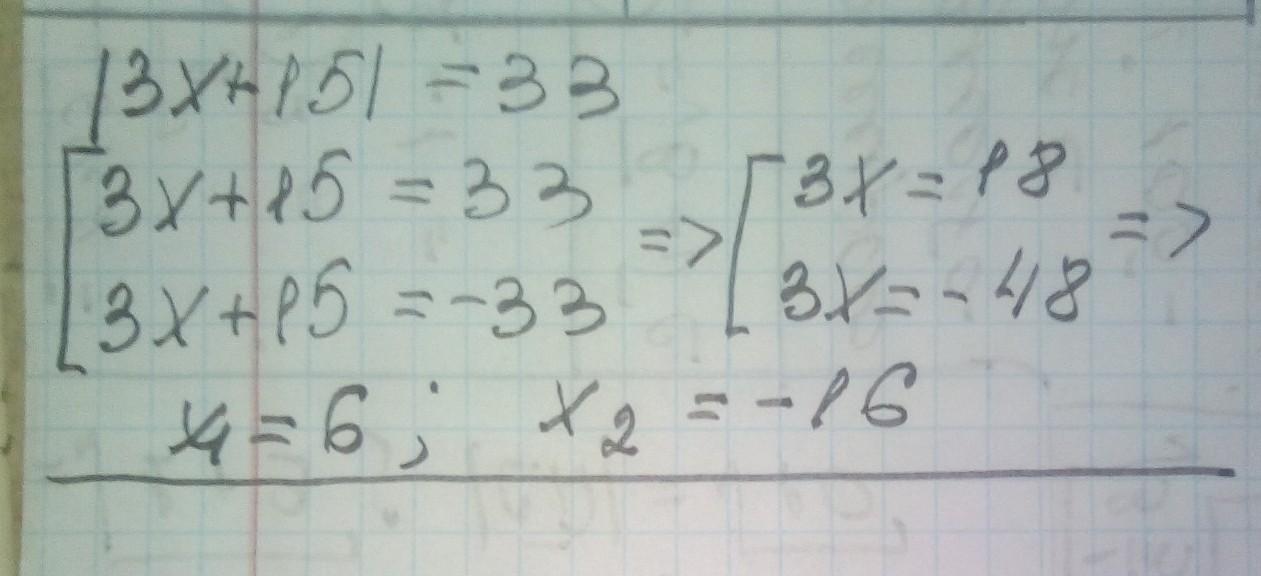 |3x+15| = 33
[3x+15 = 33 => [3x = 18 =>
3x+15 = -33 3x = -48
x1 = 6; x2 = -16